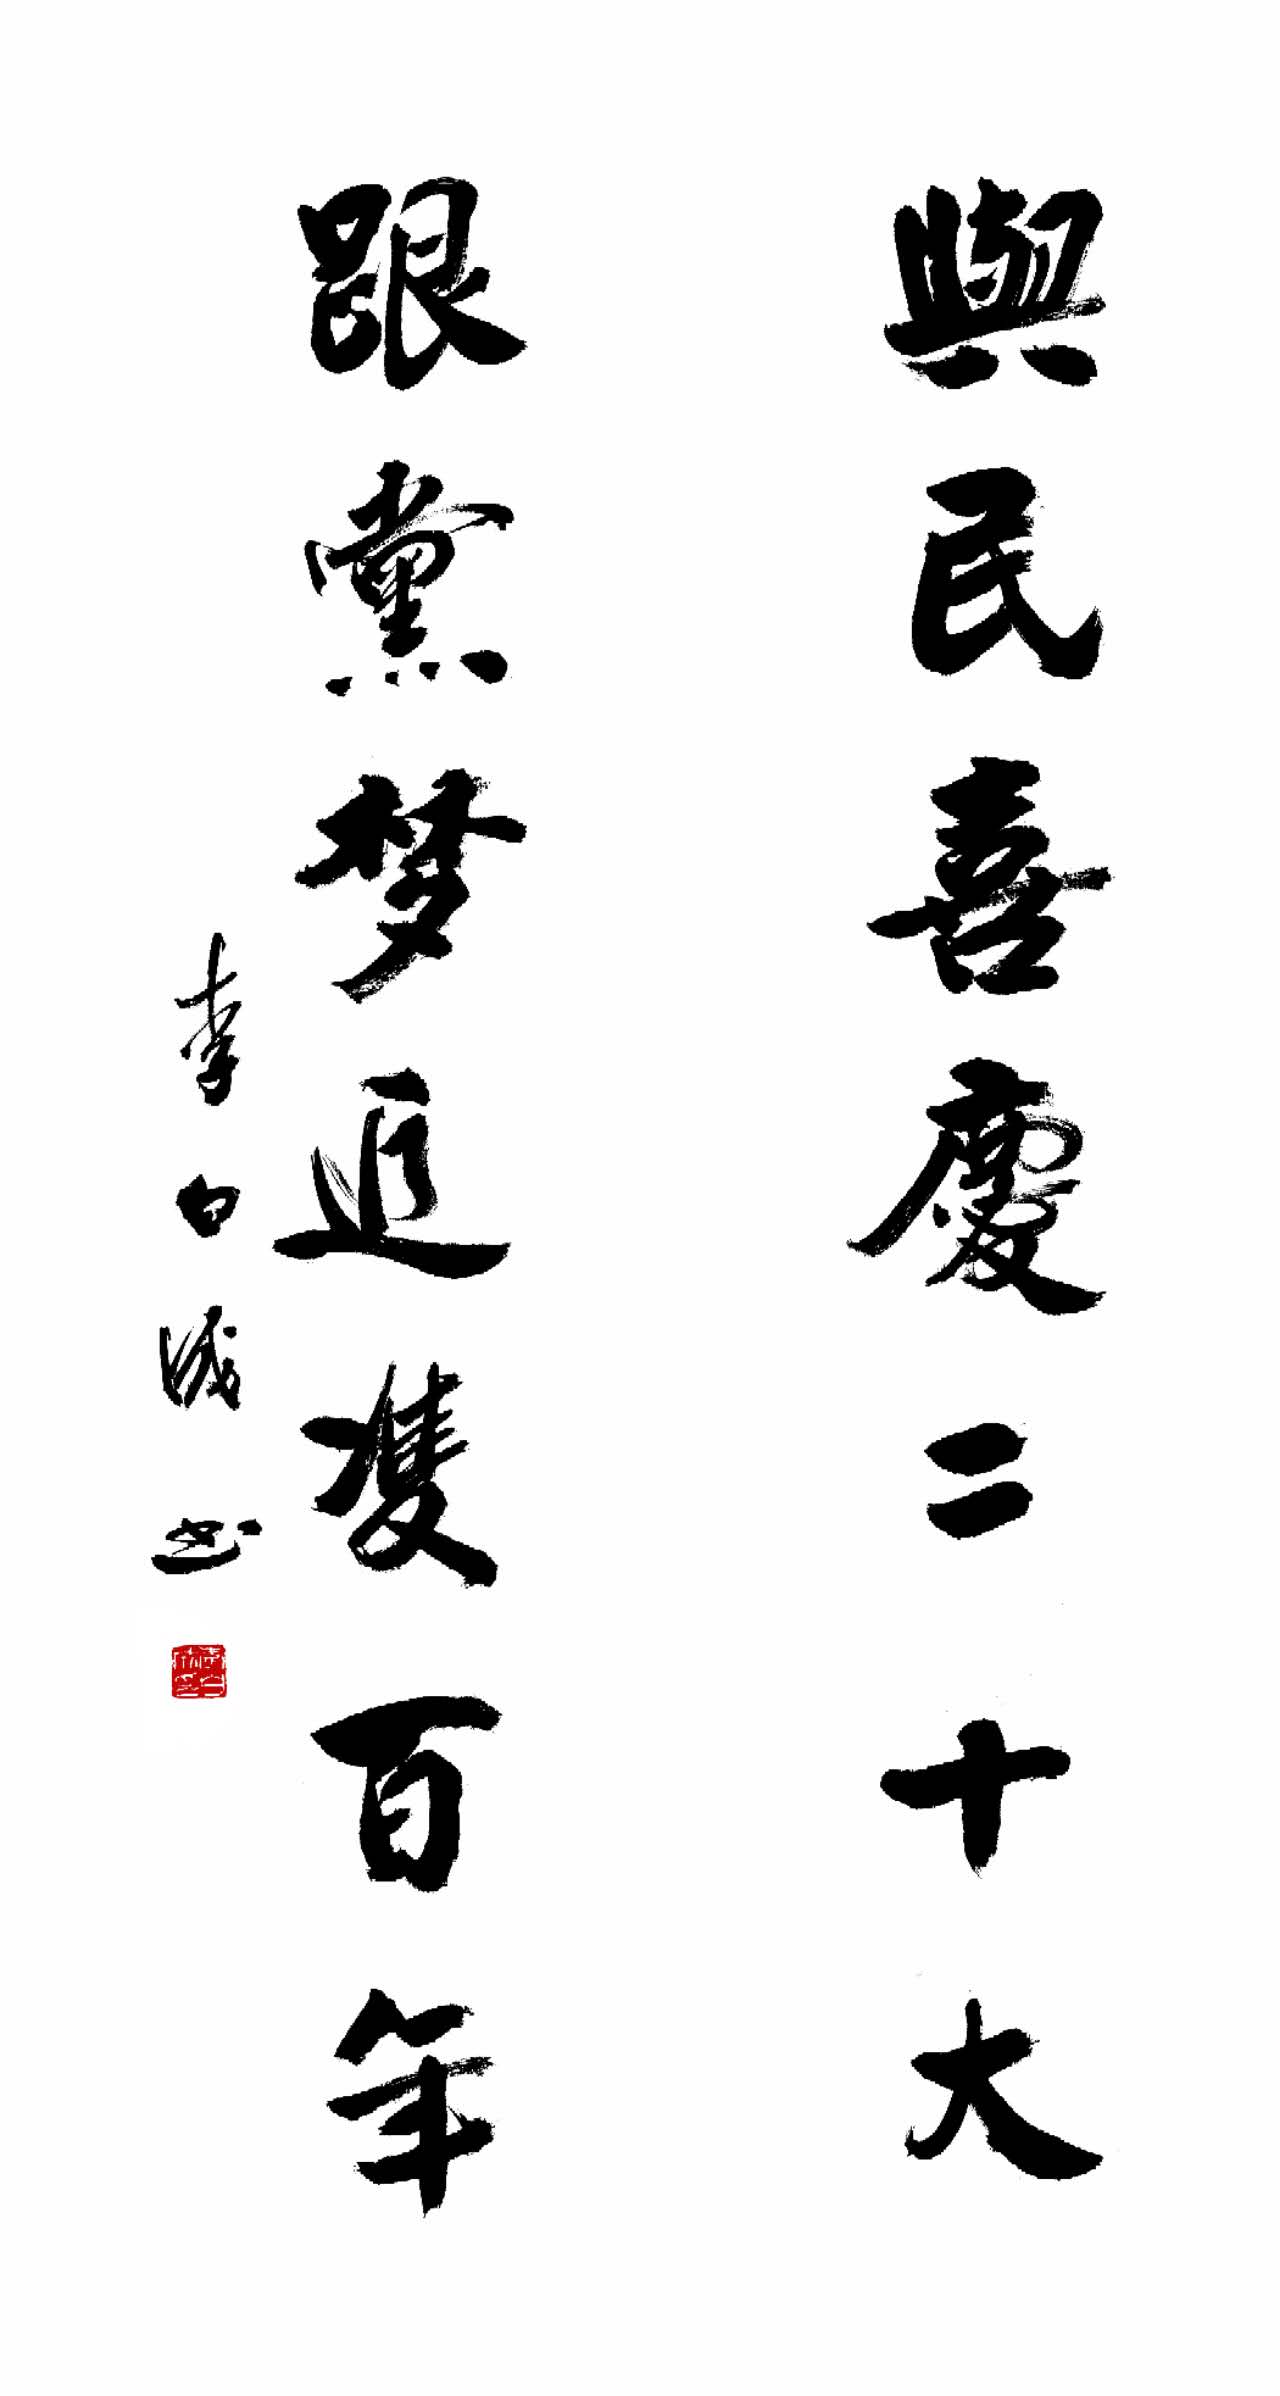 與民喜慶二十大
跟黨梦追雙百年
李白 书